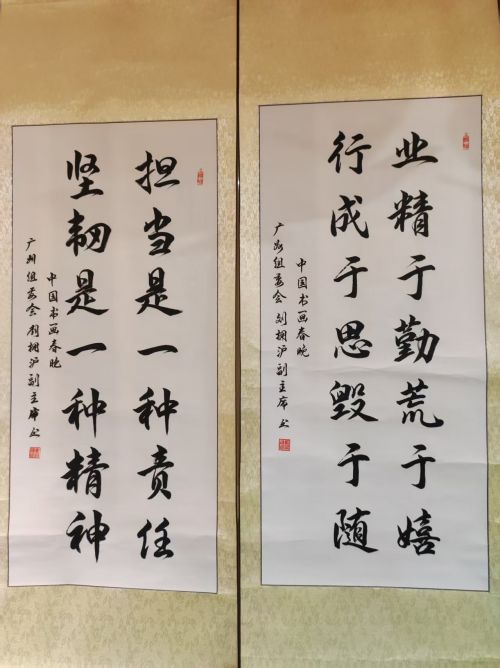 业精于勤荒于嬉
行成于思毁于随
中国书画春晚
广州组委会刘拥沪副主席书
担当是一种责任
坚韧是一种精神
中国书画春晚
广州组委会刘拥沪副主席书